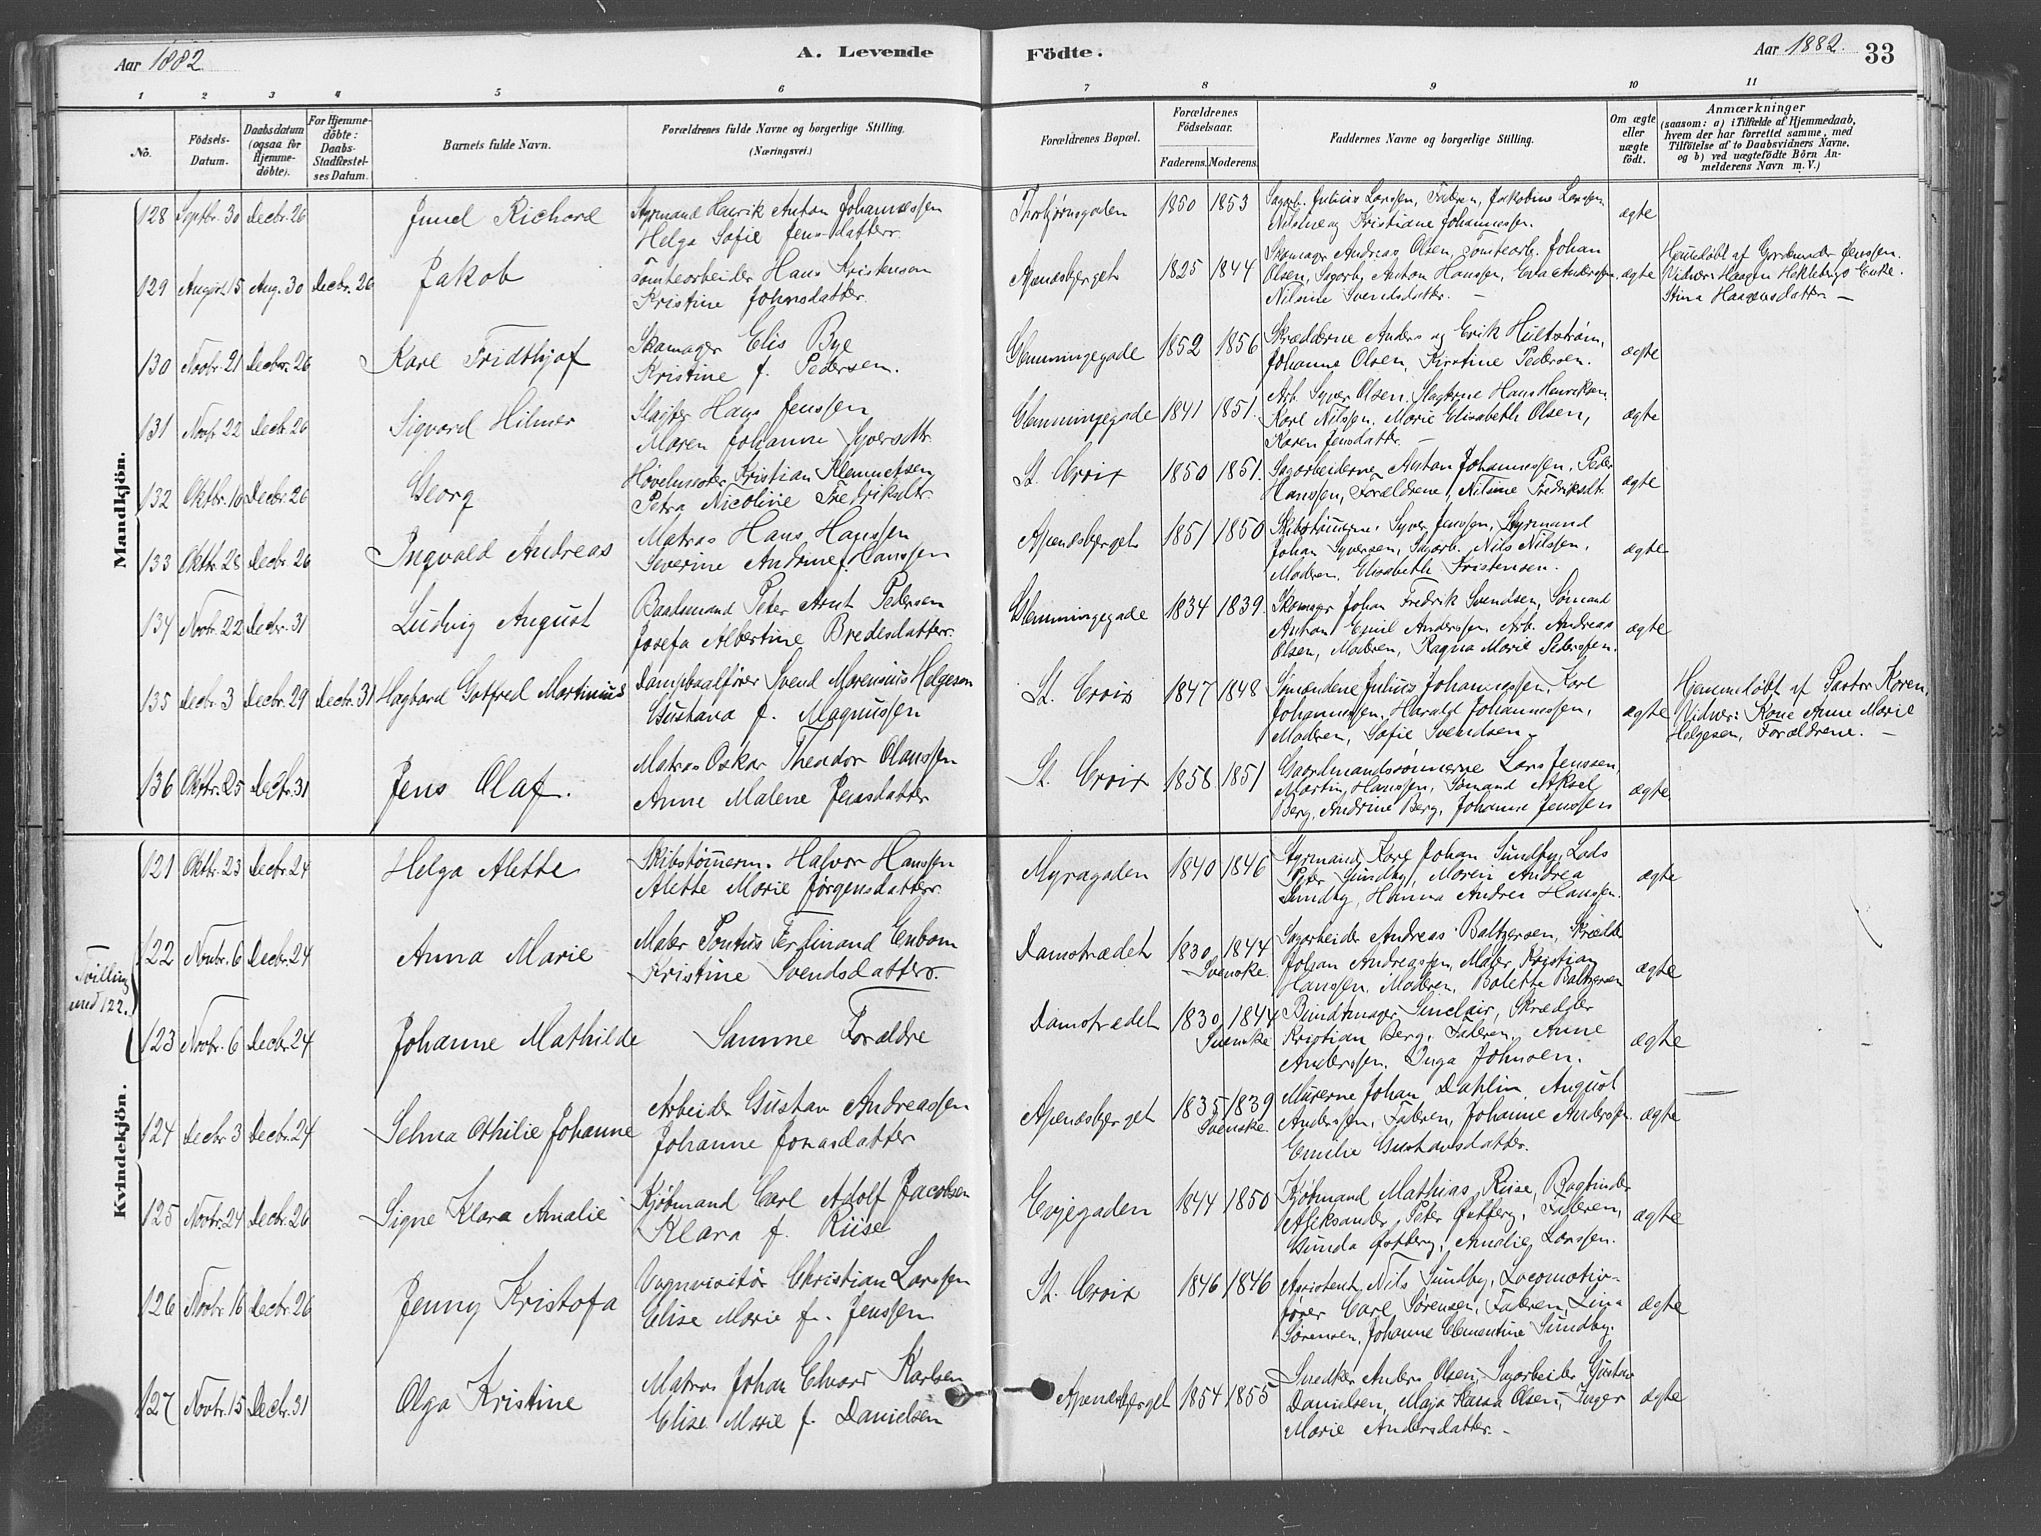 Aar 1882
A. Levende
Födte.
Aar 1882.
33
1 2 3 4 5 6 7 8 9 10 11
No.
Födsels-
Datum.
Daabsdatum
(ogsaa for
Hjemme-
döbte).
For Hjemme-
döbte:
Daabs-
Stadfæstel-
ses Datum.
Barnets fulde Navn.
Forældrenes fulde Navne og borgerlige Stilling.
(Næringsvei.)
Forældrenes Bopæl.
Forældrenes
Födselsaar.
Faderens. Moderens.
Faddernes Navne og borgerlige Stilling.
Om ægte
eller
uægte
födt.
Anmærkninger
(saasom: a) i Tilfælde af Hjemmedaab,
hvem der har forrettet samme, med
Tilföielse af to Daabsvidners Navne,
og b) ved uægtefödte Börn An-
melderens Navn m. V.)
Mandkjön.
128 Septbr. 30 Decbr. 26 Juul Richard
Styrmand Henrik Anton Johannessen
Helga Sofie Jensdatter
Thorbjørnsgaden 1850 1853
Sagarb. Julius Larssen, Faderen, Jakobine Larssen
Nilsine og Kristiane Johannessen.
ægte
129 August 15 Aug. 30 Decbr. 26 Jakob
Tomtearbeider Hans Kristensen
Kristine Johnsdatter
Apenæsberget 1825 1844
Skomager Andreas Olsen, Tomtearb. Johan
Olsen, Sagarb. Anton Hanssen, Eva Anderssen
Nilsine Svendsdatter. –
ægte
Hjemdøbt af Gjordemoder Jenssen.
Vidner: Haagen Heklebergs Enke.
Stina Haagensdatter –
130 Novbr. 21 Decbr. 26 Karl Fridthjof
Skomager Elis Bye
Kristine f. Pedersen.
Glemmingegade 1852 1856
Skrædderne Anders og Erik Hultstrøm,
Johanne Olsen, Kirstine Pedersen.
ægte
131 Novbr. 22 Decbr. 26 Sigvard Hilmer
Slagter Hans Jenssen
Maren Johanne Syversdtr.
Glemmingegade 1841 1851.
Arb. Syver Olsen. Slagterne Hans Henriksen
Karl Nilssen. Marie Elisabeth Olsen,
Karen Jensdatter. –
ægte
132 Oktbr. 16 Decbr. 26 Georg
Høvelmester Kristian Klemmetsen
Petra Nicoline Fredriksdtr
St. Croix 1850 1851.
Sagarbeiderne Anton Johannessen, Peder
Hanssen, Forældrene, Nilsine Fredriksdtr.
ægte
133 Oktbr. 28 Decbr. 26 Ingvald Andreas
Matros Hans Hanssen
Severine Andrine f. Hanssen
Apenæsberget 1851 1850
Skibstømrerne Syver Jenssen, Styrmand
Johan Syversen, Sagarb. Nils Nilssen,
Moderen, Elisabeth Kristensen.
ægte
134 Novbr. 22 Decbr. 31 Ludvig August
Baadsmand Peter Arnt Pedersen
Josefa Albertine Bredesdatter
Glemmingegade 1834 1839.
Skomager Johan Fredrik Svendsen, Sømand
Anton Emil Anderssen Arb. Andreas
Olsen, Moderen, Ragna Marie Pederssen.
ægte
135 Decbr. 3 Decbr. 29 Decbr. 31 Hagbard Gotfred Martinius
Dampsaalfører Svend Marensius Helgesen
Gustava f. Magnussen
St. Croix 1847 1848
Sømændene Julius Johannessen, Karl
Johannessen, Harald Johannessen,
Moderen, Sofie Svendsen.
ægte
Hjemmedøbt af Pastor Koren,
Vidner: Kone Anne Marie
Helgesen, Forældrene. –
136 Oktbr. 25 Decbr. 31 Jens Olaf.
Matros Oskar Theodor Olaussen
Anne Malene Jensdatter
St. Croix 1858 1851
Gaardmandssønnerne Lars Jenssen,
Martin Hanssen, Sømand Aksel
Berg, Andrine Berg, Johanne Jenssen
ægte
Kvindekjön.
121 Oktbr. 23 Decbr. 24 Helga Alette
Skibstømrerm. Halvor Hanssen
Alette Marie Jørgensdatter
Myragaden 1840 1846
Styrmand Karl Johan Sundby, Lods
Peter Sundby, Maren Andrea
Sundby, Hanna Andrea Hanssen.
ægte
Tvilling
med 122.
122 Novbr. 6 Decbr. 24 Anna Marie
Maler Pontus Ferdinand Enbom
Kristine Svendsdatter
Damstrædet 1830 1844
Svenske.
Sagarbeider Andreas Baltzersen, Skrædder
Johan Andreassen, Maler Kristian
Hanssen, Moderen, Bolette Baltzersen
ægte
123 Novbr. 6 Decbr. 24 Johanne Mathilde
Samme Forældre
Damstrædet 1830 1844
Svenske
Bundtmager Sinclair, Skrædder
Kristian Berg, Faderen, Anne
Anderssen, Inga Johnsen.
ægte
124 Decbr. 3 Decbr. 24 Selma Othilie Johanne
Arbeider Gustav Andreassen
Johanne Jonasdatter
Apenæsberget 1835 1839
Svenske.
Murerne Johan Dahlin, August
Anderssen, Faderen, Johanne Anderssen
Emilie Gustavsdatter.
ægte
125 Novbr. 24 Decbr. 26 Signe Klara Amalie
Kjøbmand Carl Adolf Jacobsen
Klara f. Riise
Evjegaden 1844 1850
Kjøbmand Mathias Riise, Bogbinder
Aleksander Peter Østberg, Faderen,
Gunda Østberg, Amalie Larssen.
ægte
126 Novbr. 16 Decbr. 26 Jenny Kristofa
Vognvisitør Christian Larssen
Elise Marie f. Jenssen
St. Croix 1846 1846
Assistent Nils Sundby, Locomotiv-
fører Carl Sørensen, Faderen, Lina
Sørensen, Johanne Clementine Sundby.
ægte
127 Novbr. 15 Decbr. 31 Olga Kristine
Matros Johan Edvard Karlsen
Elise Marie f. Danielsen
Apenæsberget 1854 1855
Snedker Anders Olsen, Sagarbeider Gustav
Danielsen, Maja Kaisa Olsen, Inger
Marie Andersdatter. –
ægte